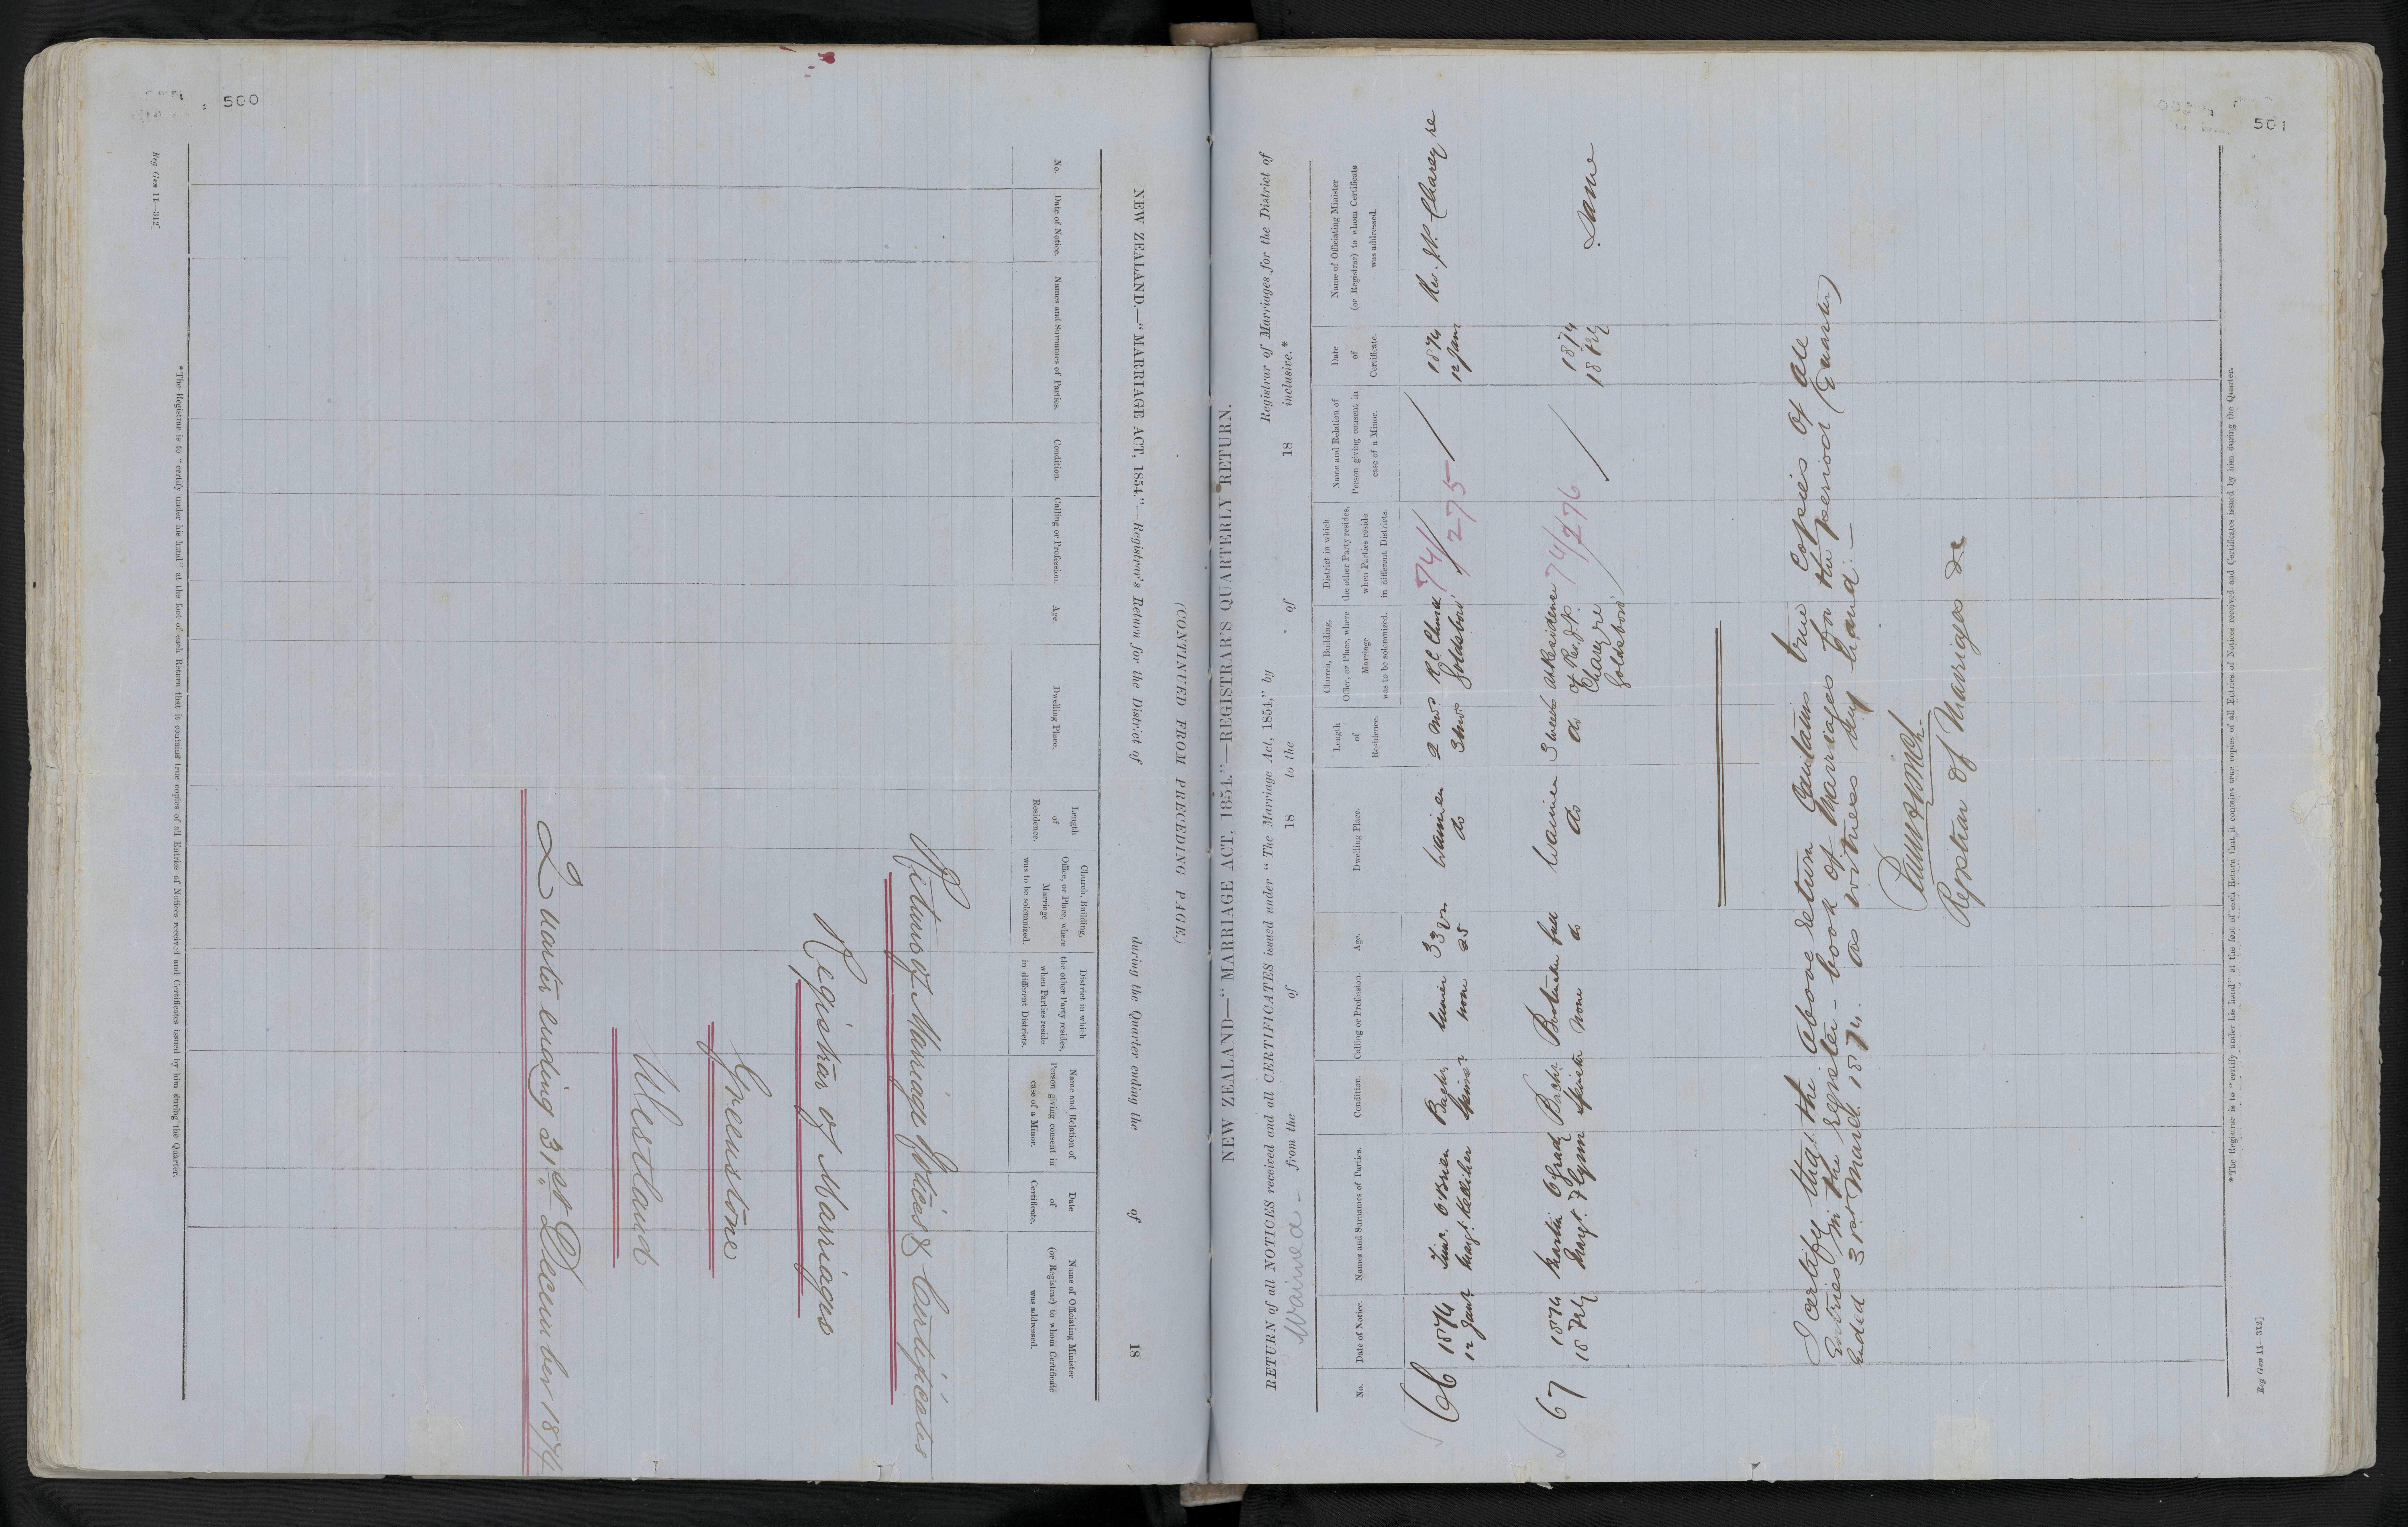 500
(CONTINUED FROM PRECEDING PAGE.)
NEW ZEALAND.—"MARRIAGE ACT, 1854."—Registrar's Return for the District of during the Quarter ending the of 18
No.
Date of Notice.
Names and Surnames of Parties.
Condition.
Calling or Profession.
Age.
Dwelling Place.
Length of Residence.
Church, Building, Office, or Place, where Marriage was to be solemnized.
District in which the other Party resides, when Parties reside in different Districts.
Name and Relation of Person giving consent in case of a Minor.
Date of Certificate.
Name of Officiating Minister (or Registrar) to whom Certificate was addressed.
Returns of Marriage Notices & Certificates
Registrar of Marriages
Greenstone
Westland
Quarter ending 31st December 1874
*The Registrar is to "certify under his hand" at the foot of each Return that it contains true copies of all Entries of Notices received and Certificates issued by him during the Quarter.
Reg Gen 11—312]
501
NEW ZEALAND—"MARRIAGE ACT, 1854."—REGISTRAR'S QUARTERLY RETURN.
RETURN of all NOTICES received and all CERTIFICATES issued under "The Marriage Act, 1854," by Registrar of Marriages for the District of
Waimea from the of 18 to the of 18 inclusive.*
No.
Date of Notice.
Names and Surnames of Parties.
Condition.
Calling or Profession.
Age.
Dwelling Place.
Length of Residence.
Church, Building, Office, or Place, where Marriage was to be solemnized.
District in which the other Party resides, when Parties reside in different Districts.
Name and Relation of Person giving consent in case of a Minor.
Date of Certificate.
Name of Officiating Minister (or Registrar) to whom Certificate was addressed.
66 1874 Timy. O'Brien Bachr miner 33 yrs Waimea 2 mos R C Church 74/275 1874 Rev. J P. Chareyre
12 Jany Margt. Kelliher Spinsr none 25 do 3 mos Goldsboro' 12 Jany
67 1874 Martin OGrady Bachr full Waimea 3 weeks at Residence 74/276 1874 Same
18 Feby Margt. Flynn Spinster none do do do of Rev J P. 18 Feby
Chareyre
Goldsboro'
I certify that the above return contains true copies of all
Entries in the register-book of Marriages for the period (Quarter)
Ended 31st March 1874. as witness my hand.—
Registrar of Marriages
*The Registrar is to "certify under his hand" at the foot of each Return that it contains true copies of all Entries of Notices received and Certificates issued by him during the Quarter.
Reg Gen 11—312]